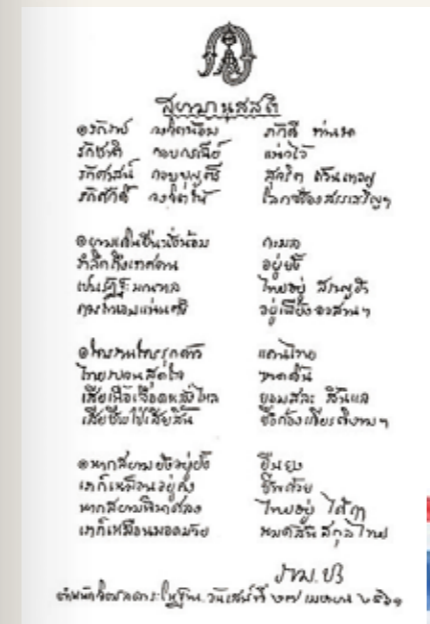 สยามานุสสติ
๏ รักราช จงจิตน้อม ภักดี ท่านนา
รักชาติ กอบกรณีย์ แน่วไว้
รักศาสน์ กอบบุญตรี สุจริต ถ้วนเทอญ
รักศักดิ์ จงจิตให้ โลกซ้องสรรเสริญฯ
๏ ยามเดินยืนนั่งน้อม กะมล
รำลึกถึงเทศตน อยู่ยั้ง
เป็นรัฏฐะมณฑล ไทยอยู่ สราญฮา
ควรถนอมแน่นตั้ง อยู่เพี้ยงอวสานฯ
๏ ใครรานใครรุกด้าว แดนไทย
ไทยรบจนสุดใจ ขาดดิ้น
เสียเนื้อเลือดหลั่งไหล ยอมสละ สิ้นแล
เสียชีพไป่เสียสิ้น ชื่อก้องเกียรติงามฯ
๏ หากสยามยังอยู่ยั้ง ยืนยง
เราก็เหมือนอยู่คง ชีพด้วย
หากสยามพินาศลง ไทยอยู่ ได้ฤา
เราก็เหมือนมอดม้วย หมดสิ้นสกุลไทย
ราม. ปร
วันเสาร์ที่ ๒๗ เมษายน ๒๔๖๑